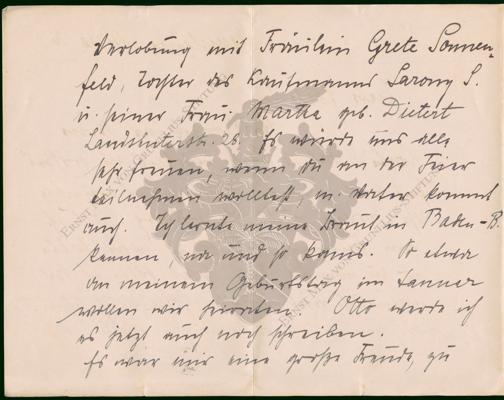 Verlobung mit Fräulein Grete Sonnen-
feld, Tochter des Kaufmanns Sarong S.
u. seiner Frau Martha geb. Dietert
Landshuterstr. 26. Es würde uns alle
sehr freuen, wenn du an der Feier
teilnehmen wolltest, m. Vater kommt
auch. Ich lernte meine Braut in Baden-B.
kennen, na und so kams. So etwa
an meinem Geburtstag im Januar
wollen wir heiraten. Otto werde ich
es jetzt auch noch schreiben.
Es war mir eine große Freude, zu